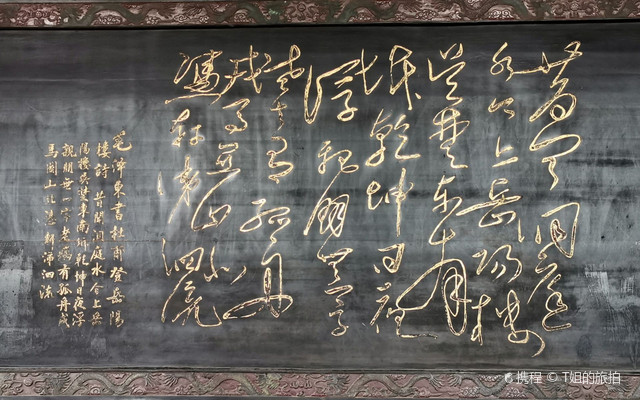 昔闻洞庭
水今上岳阳楼
吴楚东南
坼乾坤日夜
浮親朋無一字
老去有孤舟
戎马関山北
凭轩涕泗流
毛泽東書杜甫登岳陽
楼詩 昔聞洞庭水今上岳
陽樓吴楚東南坼乾坤日夜浮
親朋無一字老病有孤舟戎
馬関山北憑軒涕泗流
携程 © T姐的旅拍